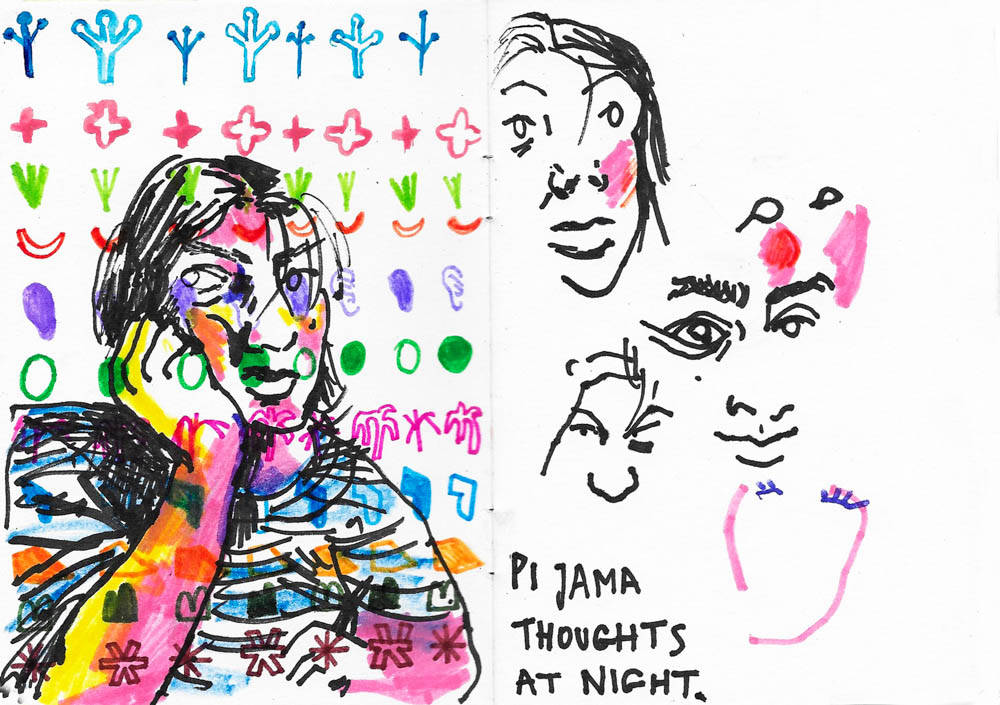 PI JAMA
THOUGHTS
AT NIGHT.